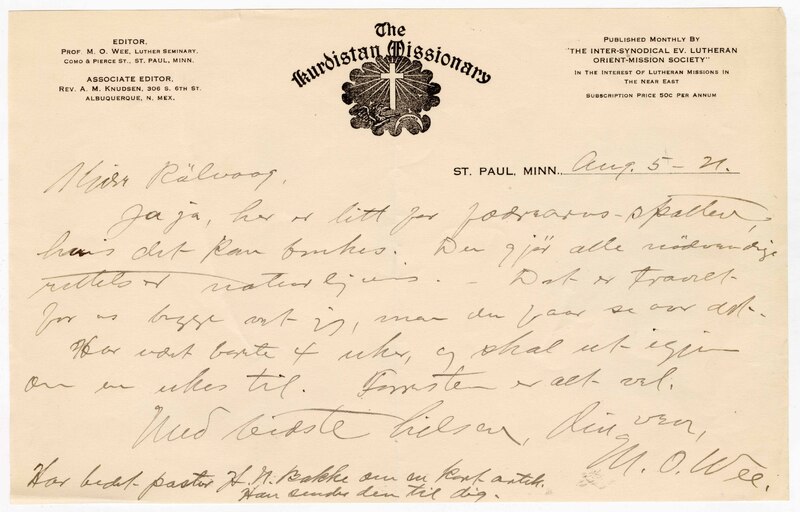 EDITOR,
PROF. M. O. WEE, LUTHER SEMINARY,
COMO & PIERCE ST., ST. PAUL, MINN.
ASSOCIATE EDITOR,
REV. A. M. KNUDSEN, 306 S. 6TH ST.
ALBUQUERQUE, N. MEX.
The
Kurdistan Missionary
PUBLISHED MONTHLY BY
"THE INTER-SYNODICAL EV. LUTHERAN
ORIENT-MISSION SOCIETY"
IN THE INTEREST OF LUTHERAN MISSIONS IN
THE NEAR EAST
SUBSCRIPTION PRICE 50C PER ANNUM
ST. PAUL, MINN., Aug. 5 - 21.
Kjære Rölvaag,
Ja ja, her er litt for fædrearvs-spalten,
hvis det kan brukes. Du gjör alle nödvendige
rettelser naturligvis. - Det er travelt
for os begge vet jeg, men du faar se over det.
Har vært borte 4 uker, og skal ut igjen
om en ukes tid. Forresten er alt vel.
Med bedste hilsen, din ven,
M. O. Wee.
Har bedt pastor H. N. Bakke om en kort artik.
Han sender den til dig.